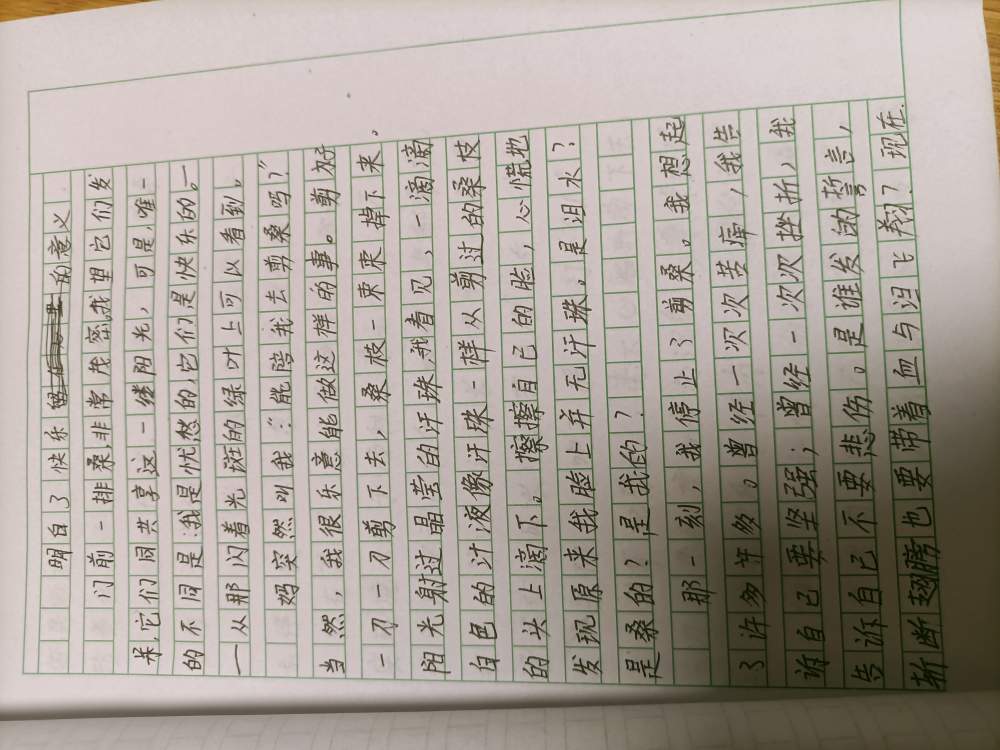 明白了快乐的意义
门前一排桑非常茂密,我望它们发
呆,它们同共享这一缕阳光,可是,唯一
的不同是:我是忧愁的,它们是快乐的。一
一从那闪着光斑的绿叶上可以看到。
妈突然叫我:“能陪我去剪桑吗?”
当然,我很乐意能做这样的事。剪好
一刀一刀剪下去,桑枝一束束掉下来。
阳光射过晶莹的汗珠,我看见,一滴滴
白色的汁液像汗珠一样从剪过的桑枝
的头上滴下。擦擦自己的脸,心慌地
发现原来我脸上并无汗珠。是泪水?
是桑的?是我的?
那一刻,我停止了剪桑。我想起
了许多许多。曾经一次次苦痛,我告
诉自己要坚强;曾经一次次挫折,我
告诉自己不要悲伤。是谁发的誓言,
斩断翅膀也要带着血与泪飞翔?现在.